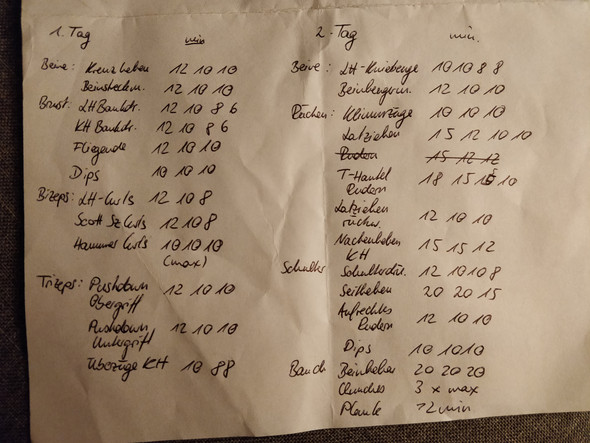 1. Tag
min
Beine: Kreuzheben 12 10 10
Beinstreckm. 12 10 10
Brust: LH Bankdr. 12 10 8 6
KH Bankdr. 12 10 8 6
Fliegende 12 10 10
Dips 10 10 10
Bizeps: LH-Curls 12 10 8
Scott Sz Curls 12 10 8
Hammer Curls 10 10 10
(max)
Trizeps: Pushdown 12 10 10
Obergriff
Pushdown 12 10 10
Untergriff
Überzüge KH 10 8 8
2. Tag
min.
Beine: LH-Kniebeuge 10 10 8 8
Beinbeugem. 12 10 10
Rücken: Klimmzüge 10 10 10
Latziehen 15 12 10 10
Rudern 15 12 12
T-Hantel 18 15 15 10
Rudern
Latziehen 12 10 10
rückw.
Nackenheben 15 15 12
KH
Schulter Schulterdr. 12 10 10 8
Seitheben 20 20 15
Aufrechtes 12 10 10
Rudern
Dips 10 10 10
Bauch Beinheber 20 20 20
Crunches 3 x max
Planke 12min